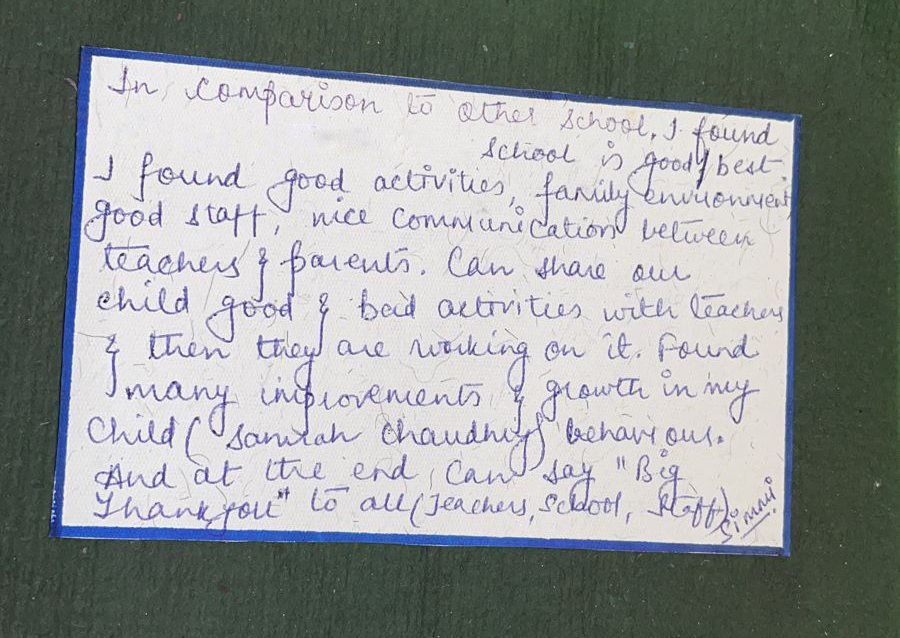 In comparison to other school, I found
school is good/best.
I found good activities, family environment,
good staff, nice communication between
teachers & parents. Can share our
child good & bad activities with teachers
& then they are working on it. Found
many improvements & growth in my
Child ( Chaudhry) behaviour.
And at the end, Can say "Big
Thank you" to all (Teachers, School, Staff)
Simmi